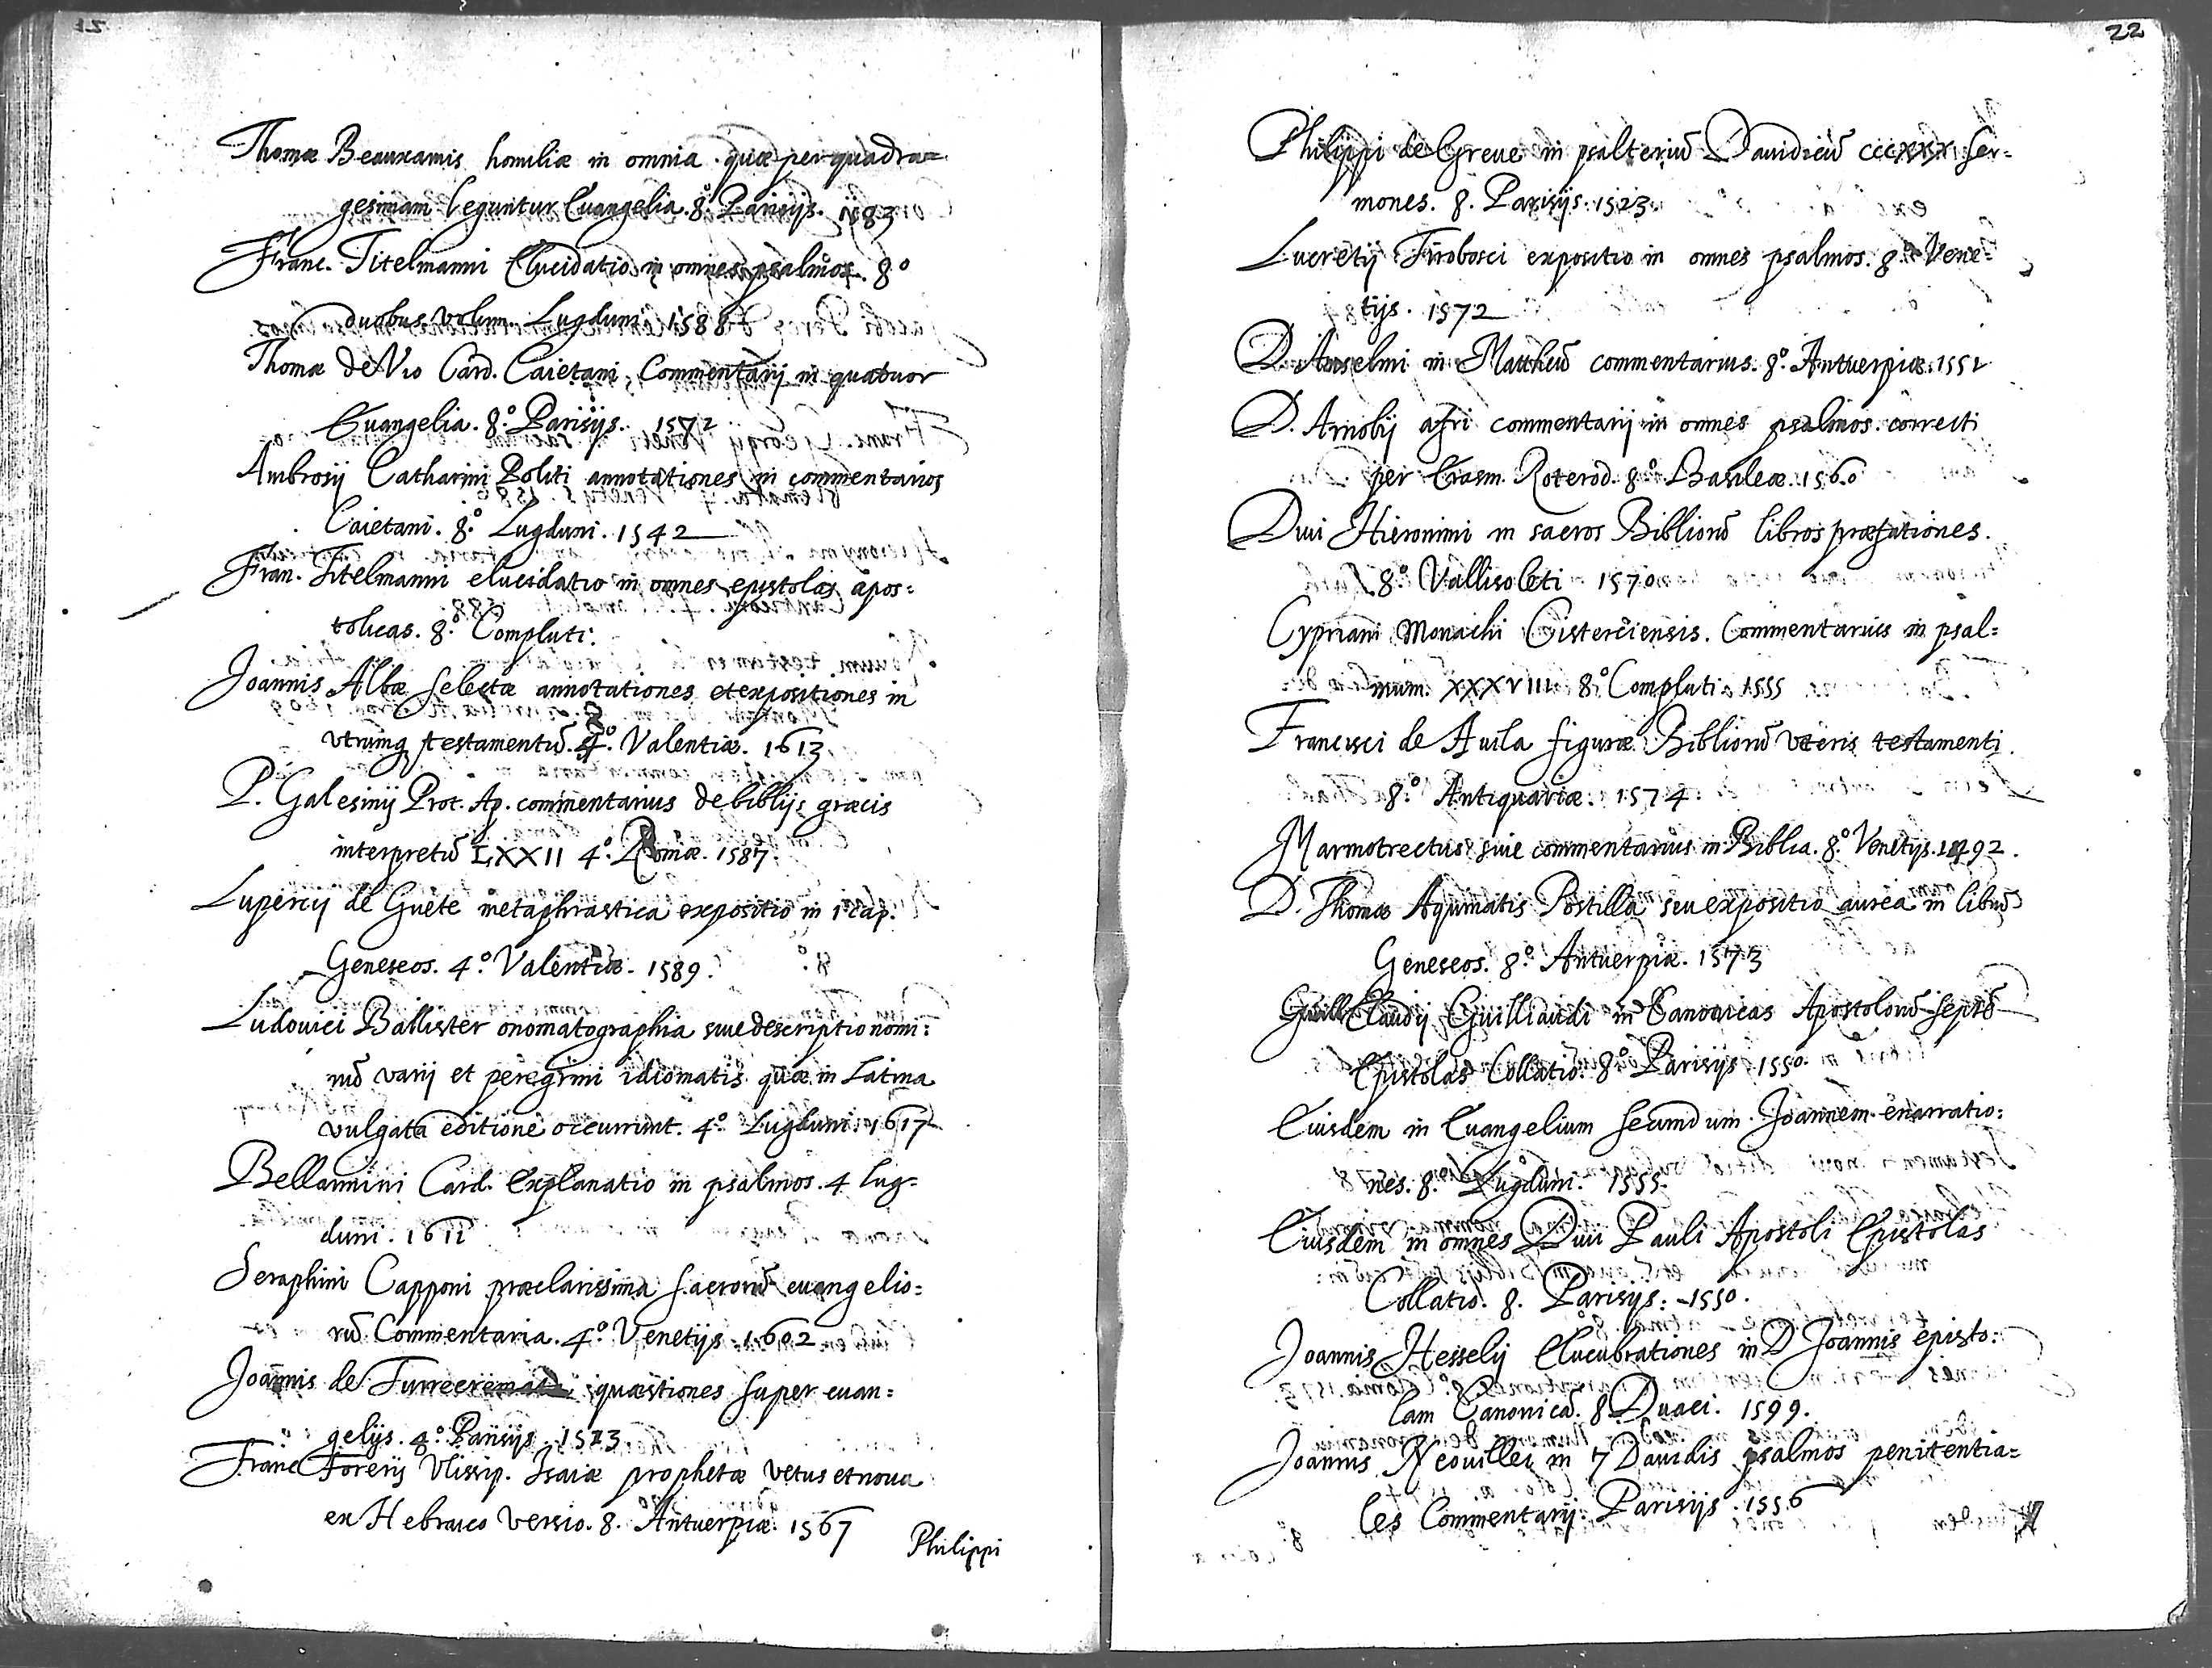 Thomæ Beauxamis homiliæ in omnia quæ per quadra=
gesimam leguntur Euangelia. 8º Parisijs. 1583
Franc. Titelmanni Elucidatio in omnes psalmos. 8º
duobus volum. Lugduni 1588
Thomæ de Vio Card. Caietani, Commentarij in quatuor
Euangelia. 8º. Parisijs. 1572
Ambrosij Catharini Politi annotationes in commentarios
Caietani. 8º. Lugduni. 1542
Fran. Titelmanni elucidatio in omnes epistolas apos=
tolicas. 8º. Compluti.
Joannis Albæ selectæ annotationes et expositiones in
vtrumq testamentū. 8º. Valentiæ. 1613
P. Galesinij Prot. Ap. commentarius de biblijs græcis
interpretū LXXII 4º. Romæ. 1587.
Lupercij de Guete metaphrastica expositio in 1 cap.
Geneseos. 4º. Valentiæ. 1589.
Ludouici Ballister onomatographia siue descriptio nomi=
nū varij et peregrini idiomatis quæ in Latina
vulgata editione occurrunt. 4º Lugduni. 1617
Bellarmini Card. Explanatio in psalmos. 4 Lug=
duni. 1611
Seraphini Capponi præclarissima sacrorū euangelio=
rū Commentaria. 4º. Venetijs. 1602
Joannis de Turrecremata quæstiones super euan=
gelijs. 4º. Parisijs. 1513
Franc Forerij Vlissip. Isaiæ prophetæ vetus et noua
ex Hebraico versio. 8. Antuerpiæ. 1567
Philippi
22
Philippi de Greue in psalteriū Dauidicū cccxxx ser=
mones. 8. Parisijs. 1523
Lucretij Tirobosci expositio in omnes psalmos. 8º. Vene=
tijs. 1572
D. Anselmi in Mattheū commentarius. 8º. Antuerpiæ. 1551
D. Arnobij afri commentarij in omnes psalmos. correcti
per Erasm. Roterod. 8º. Basileæ. 1560
Diui Hieronimi in sacros Bibliorū libros præfationes.
8º. Vallisoleti 1570
Cypriani Monachi Cisterciensis. Commentarius in psal=
mum. XXXVIII 8º Compluti. 1555
Francisci de Auila figuræ Bibliorū veteris testamenti.
8º. Antiquariæ. 1574.
Marmotrectus siue commentarius in Biblia. 8º. Venetijs. 1492.
D. Thomæ Aquinatis Postilla seu expositio aurea in librū
Geneseos. 8º. Antuerpiæ. 1573
Claudij Guilliaudi in Canonicas Apostolorū septē
Epistolas Collatio. 8º. Parisijs 1550.
Eiusdem in Euangelium secundum Joannem enarratio=
nes. 8. Lugduni. 1555.
Eiusdem in omnes Diui Pauli Apostoli Epistolas
Collatio. 8. Parisijs. 1550.
Joannis Hesselij Elucubrationes in D Joannis episto=
lam Canonicā. 8. Duaci. 1599.
Joannis Neouillei in 7 Dauidis psalmos penitentia=
les Commentarij. Parisijs. 1556